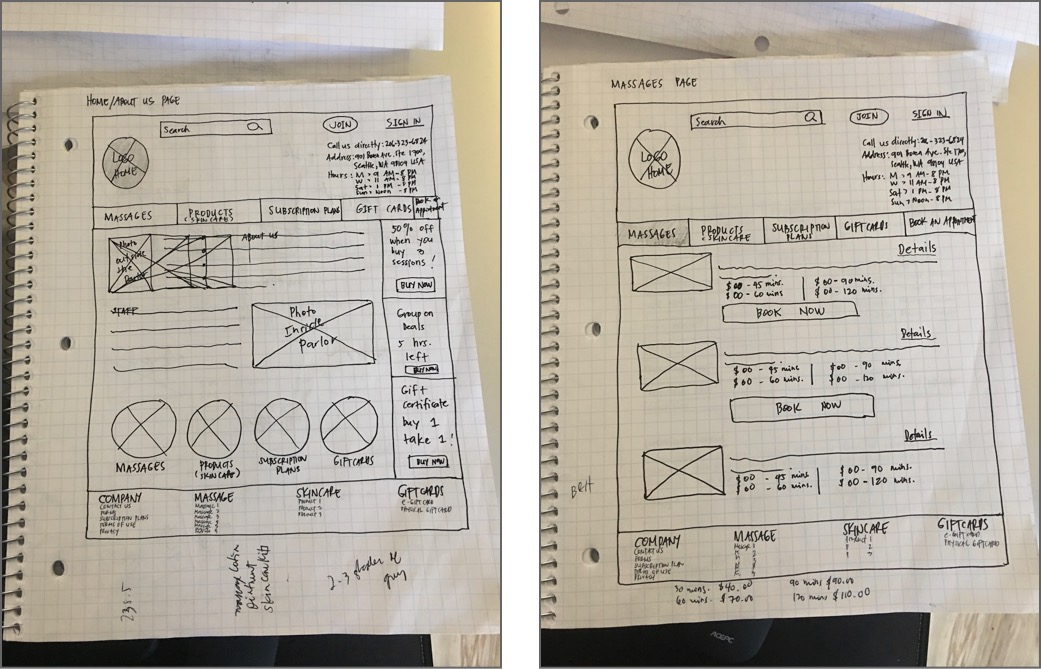 HOME/ABOUT US PAGE
Search
JOIN
SIGN IN
LOGO
HOME
Call us directly: 206-323-6824
Address: 901 Boren Ave. Ste 1700,
Seattle, WA 98104 USA
Hours: M > 9 AM - 8 PM
W > 11 AM - 8 PM
Sat > 1 PM - 8 PM
Sun > Noon - 8 PM
MASSAGES
PRODUCTS
(SKINCARE)
SUBSCRIPTION PLANS
GIFT CARDS
Photo
outside
the
Parlor
ABOUT US
50% off
when you
buy 3
sessions!
BUY NOW
STAFF
Photo
Inside
Parlor
Group on
Deals
5 hrs.
left
BUY NOW
Gift
certificate
buy 1
take 1!
BUY NOW
MASSAGES
PRODUCTS
(SKINCARE)
SUBSCRIPTION
PLANS
GIFTCARDS
COMPANY
CONTACT US
SUBSCRIPTION PLANS
TERMS OF USE
PRIVACY
MASSAGE
SKINCARE
PRODUCT 1
PRODUCT 2
PRODUCT 3
GIFTCARDS
E-GIFTCARD
PHYSICAL GIFTCARD
MASSAGES PAGE
Search
JOIN
SIGN IN
LOGO
HOME
Call us directly: 206-323-6824
Address: 901 Boren Ave. Ste 1700,
Seattle, WA 98104 USA
Hours: M > 9 AM - 8 PM
W > 11 AM - 8 PM
Sat > 1 PM - 8 PM
Sun > Noon - 8 PM
MASSAGES
PRODUCTS
SKINCARE
SUBSCRIPTION
PLANS
GIFTCARDS
BOOK AN APPOINTMENT
Details
$00 - 45 mins. $00 - 90 mins.
$00 - 60 mins. $00 - 120 mins.
BOOK NOW
Details
$00 - 45 mins $00 - 90 mins.
$00 - 60 mins. $00 - 120 mins.
BOOK NOW
Details
$00 - 45 mins $00 - 90 mins.
$00 - 60 mins. $00 - 120 mins.
COMPANY
CONTACT US
SUBSCRIPTION PLAN
TERMS OF USE
PRIVACY
MASSAGE
SKINCARE
GIFTCARDS
E-GIFTCARD
PHYSICAL GIFTCARD
30 mins. $40.00 90 mins $90.00
60 mins. $70.00 120 mins $110.00